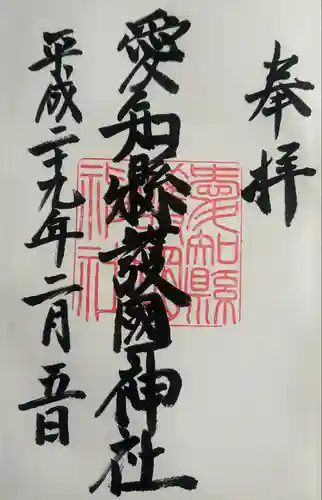 奉拝
愛知縣護國神社
平成二十九年二月五日
愛知縣護國神社